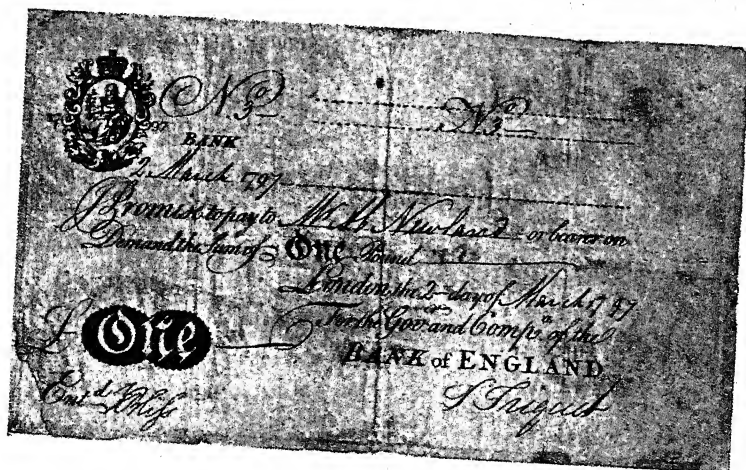 No. 3 No. 3
BANK
2 March 1797
Promise to pay to Mr Ab. Newland or bearer on
Demand the Sum of One Pound
London the 2 day of March 1797
For the Govr. and Compa. of the
£ One
BANK of ENGLAND
Entd.